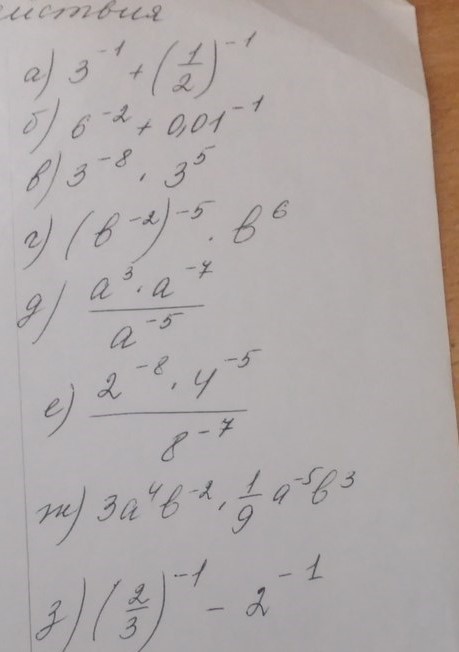 ействия
а) 3⁻¹ + (1/2)⁻¹
б) 6⁻² + 0,01⁻¹
в) 3⁻⁸ · 3⁵
г) (в⁻²)⁻⁵ · в⁶
д) a³ · a⁻⁷ / a⁻⁵
е) 2⁻⁸ · 4⁻⁵ / 8⁻⁷
ж) 3a⁴в⁻² · 1/9 a⁻⁵в³
з) (2/3)⁻¹ - 2⁻¹